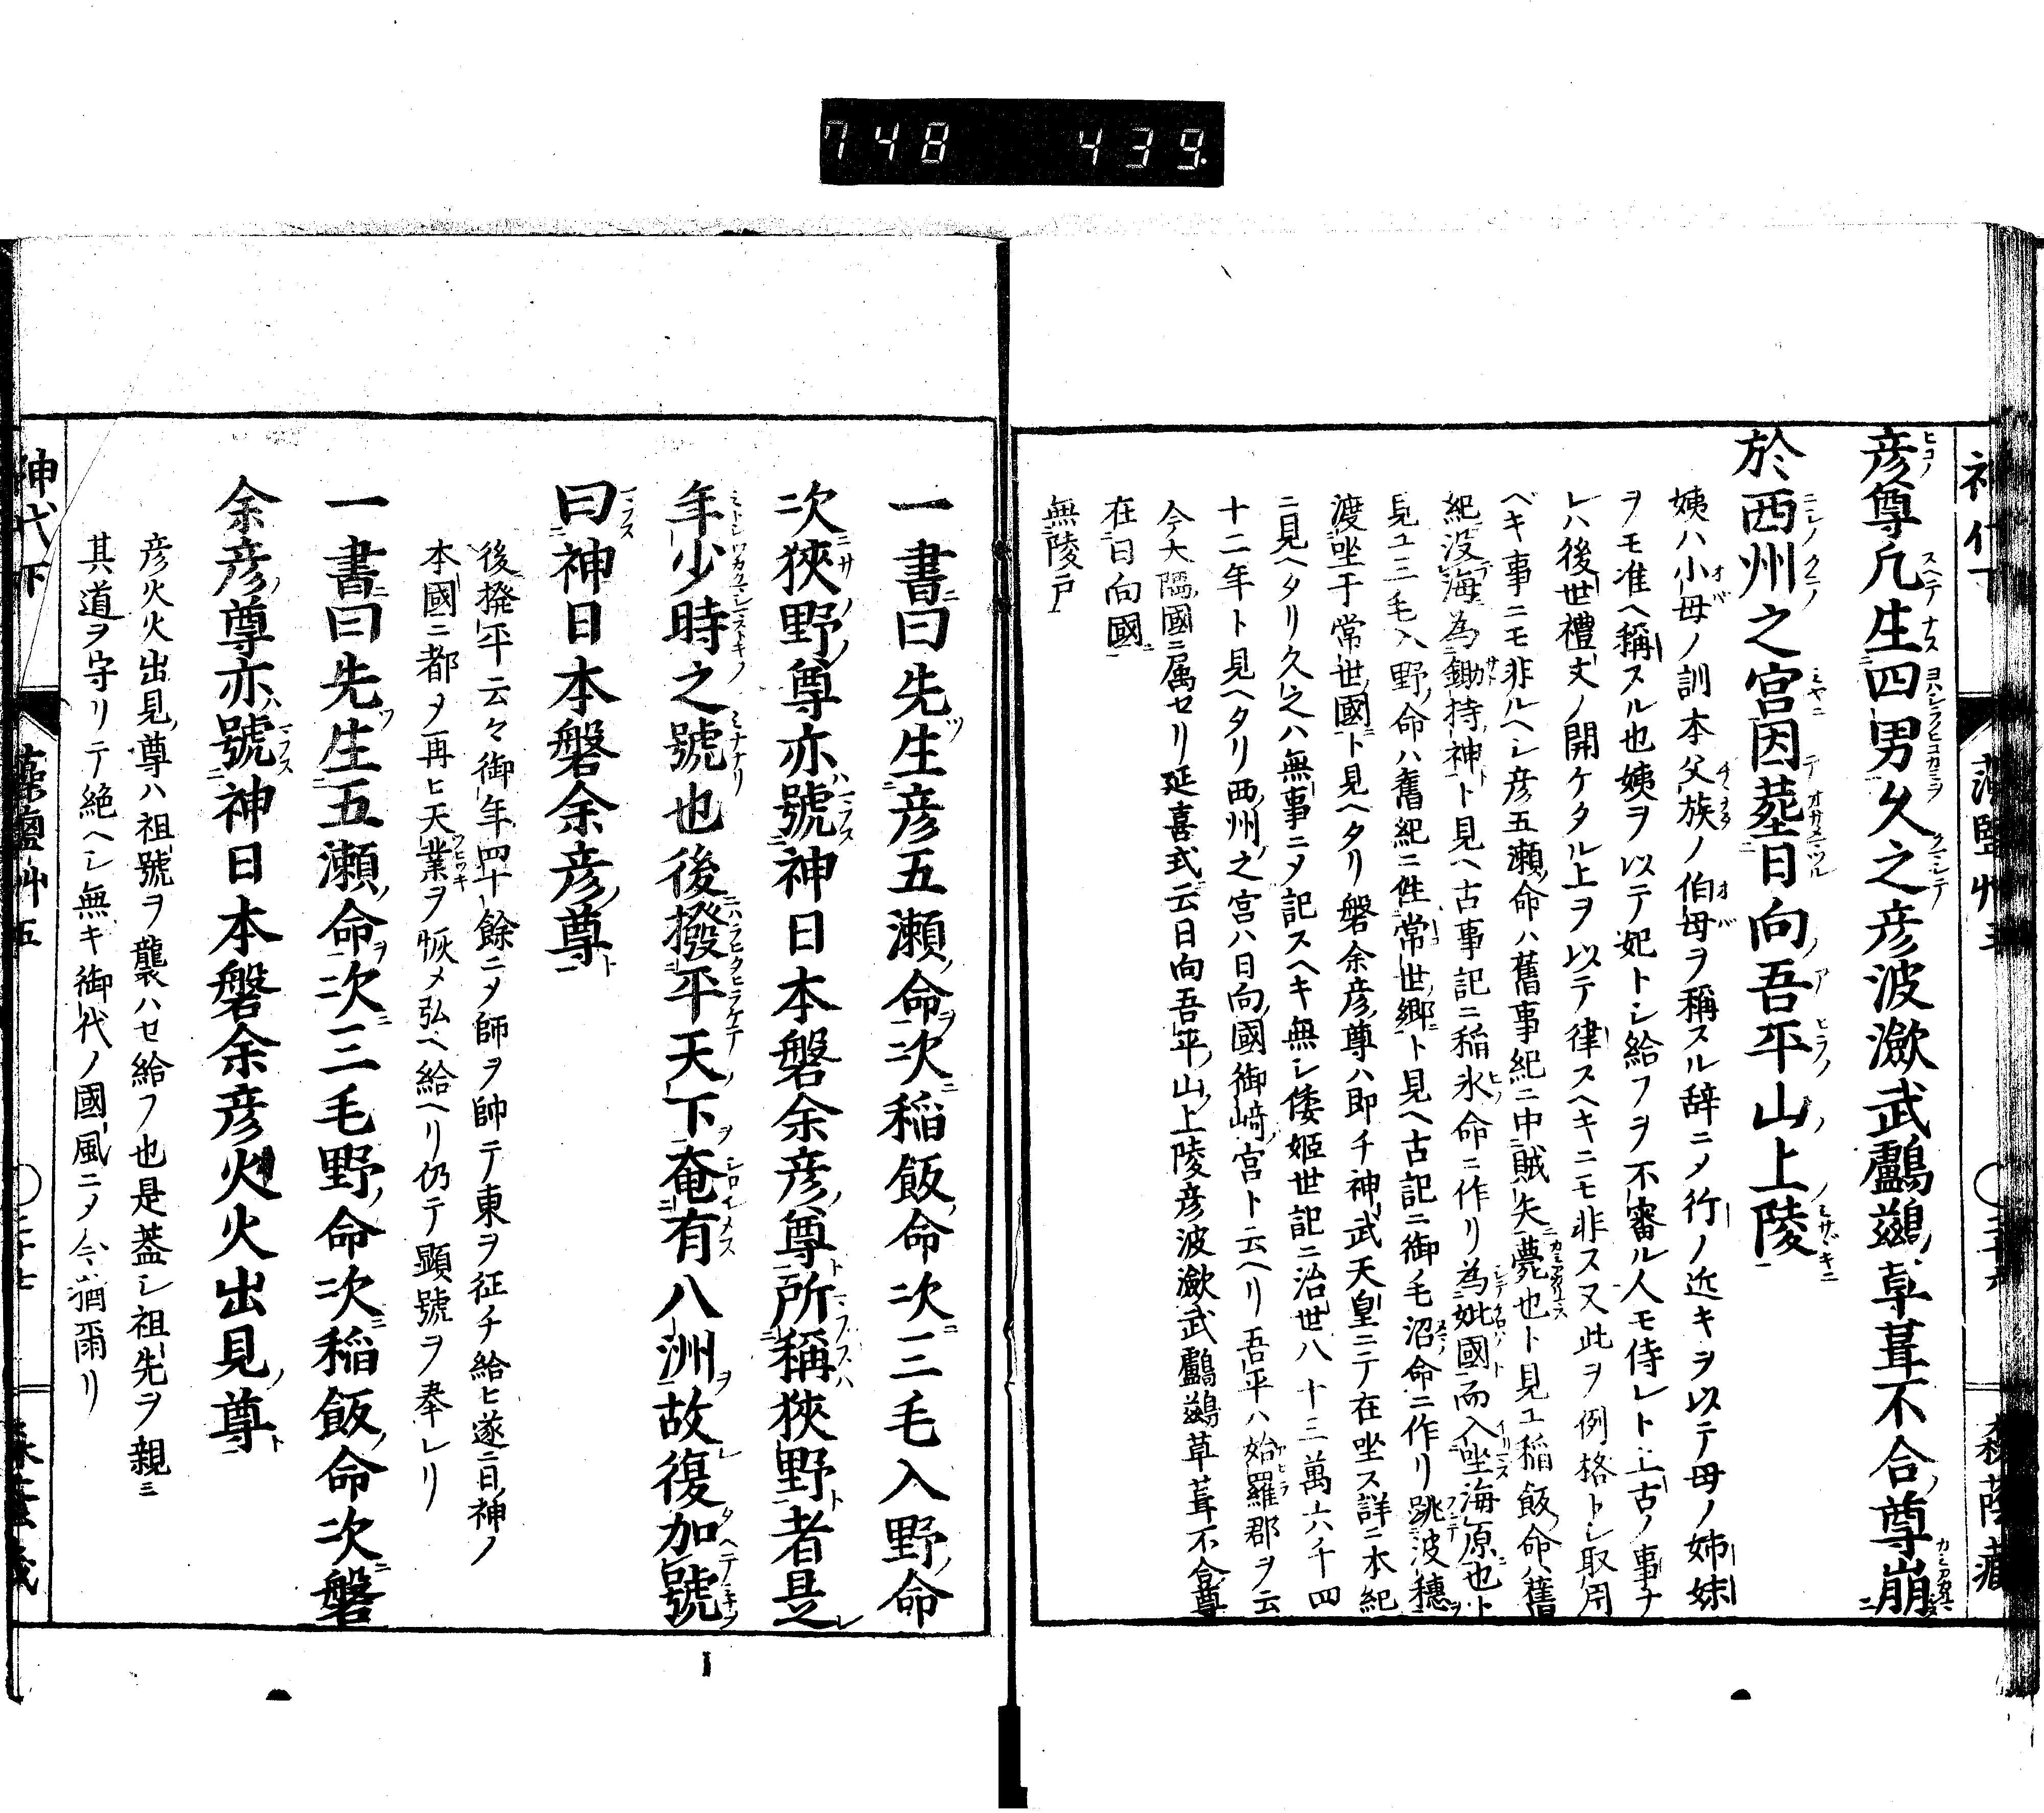 748 439
彦尊凡生四男久之彦波瀲武鸕鷀草葺不合尊崩
於西州之宮因葬日向吾平山上陵
姨ハ小母ノ訓本父族ノ伯母ヲ稱スル辞ニメ行ノ近キヲ以テ母ノ姉妹
ヲモ准ヘ稱スル也姨ヲ以テ妃トシ給フヲ不審ル人モ侍レト上古ノ事ナ
レハ後世禮文ノ開ケタル上ヲ以テ律スヘキニモ非ス又此ヲ例格トシ取用
ベキ事ニモ非ルヘシ彦五瀬命ハ舊事紀ニ中賊矢薨也ト見ユ稲飯命ハ舊
紀没海為鋤持神ト見ヘ古事記ニ稲氷命ニ作リ為妣國而入坐海原也ト
見ユ三毛入野命ハ舊紀ニ徃常世郷ト見ヘ古記ニ御毛沼命ニ作リ跳波穗
渡坐于常世國ト見ヘタリ磐余彦尊ハ即チ神武天皇ニテ在坐ス詳ニ本紀
ニ見ヘタリ久之ハ無事ニメ記スヘキ無シ倭姫世記ニ治世八十三萬六千四
十二年ト見ヘタリ西州之宮ハ日向國御﨑宮ト云ヘリ吾平ハ姶羅郡ヲ云
今大隅國ニ属セリ延喜式云日向吾平山上陵彦波瀲武鸕鷀草葺不合尊
在日向國
無陵戸
一書曰先生彦五瀬命次稲飯命次三毛入野命
次狹野尊亦號神日本磐余彦尊所稱狹野者是
年少時之號也後撥平天下奄有八洲故復加號
曰神日本磐余彦尊
後撥平云々御年四十餘ニメ師ヲ帥テ東ヲ征チ給ヒ遂ニ日神ノ
本國ニ都メ再ヒ天業ヲ恢メ弘ヘ給ヘリ仍テ顯號ヲ奉レリ
一書曰先生五瀬命次三毛野命次稲飯命次磐
余彦尊亦號神日本磐余彦火火出見尊
彦火火出見尊ハ祖號ヲ襲ハセ給フ也是蓋シ祖先ヲ親ミ
其道ヲ守リテ絶ヘシ無キ御代ノ國風ニメ今猶爾リ
神代下